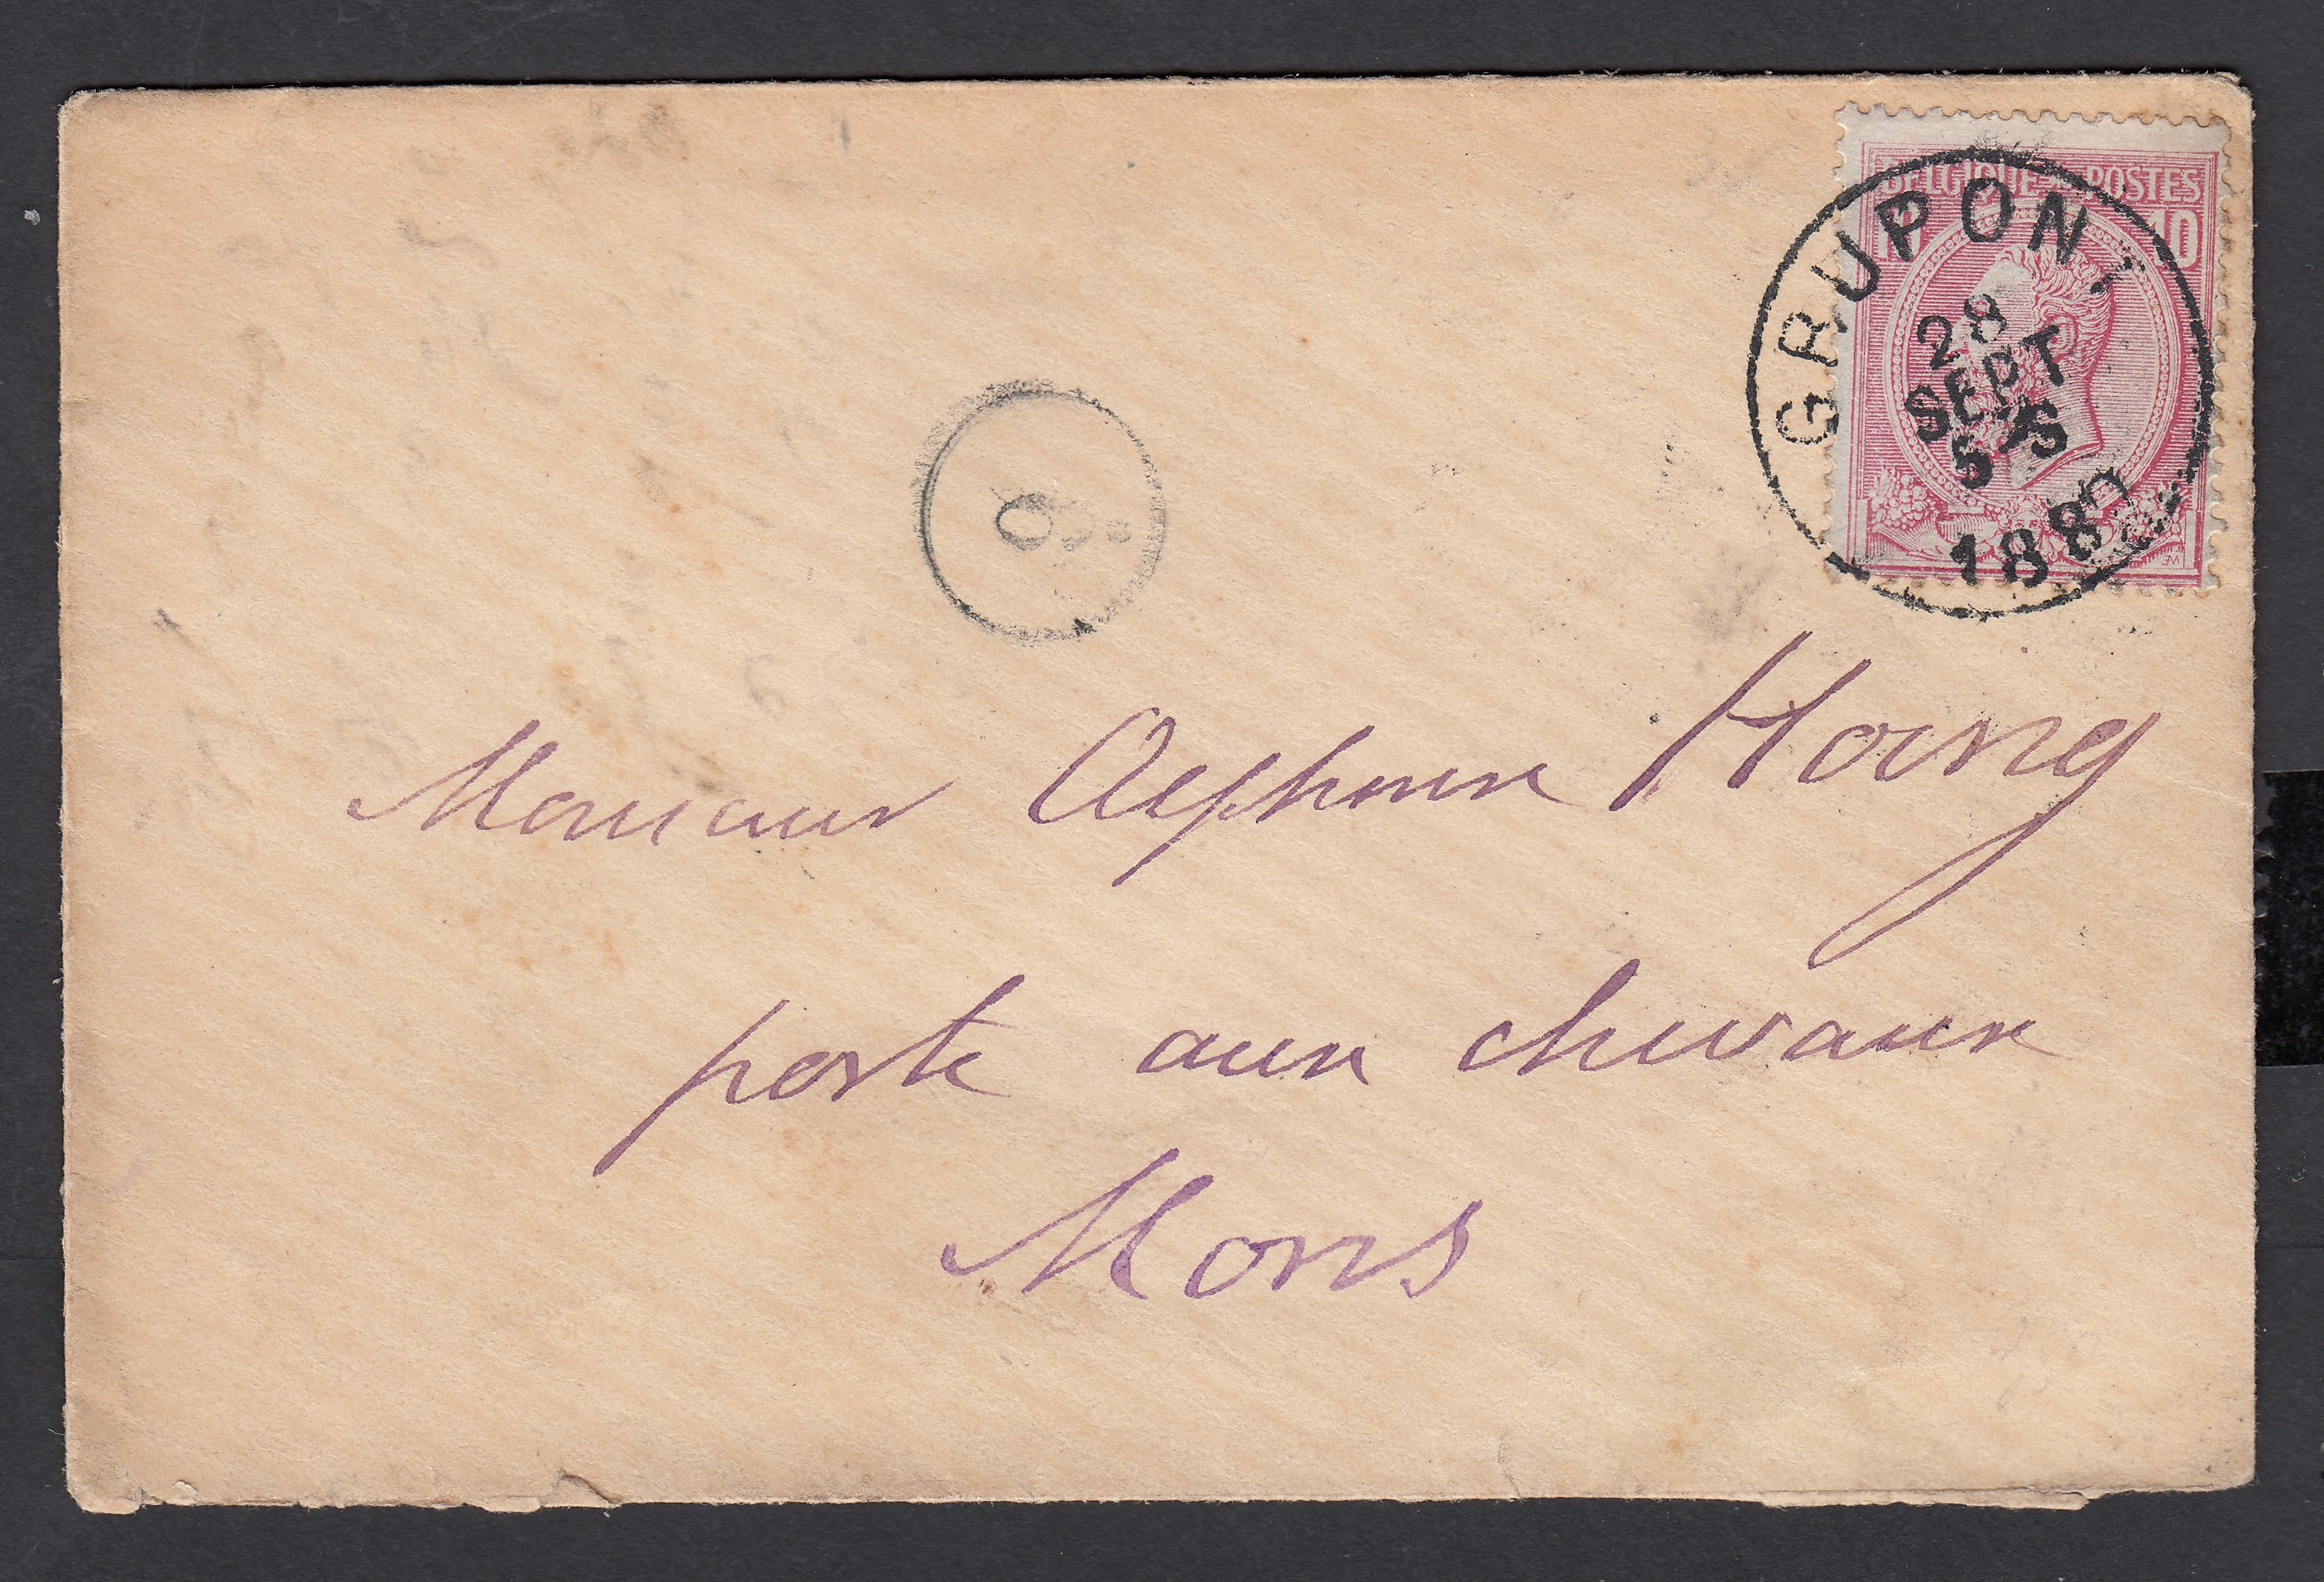 BELGIQUE POSTES
10 10
GRUPONT
28
SEPT
5-S
188
Monsieur Alphonse
poste aux chevaux
Mons